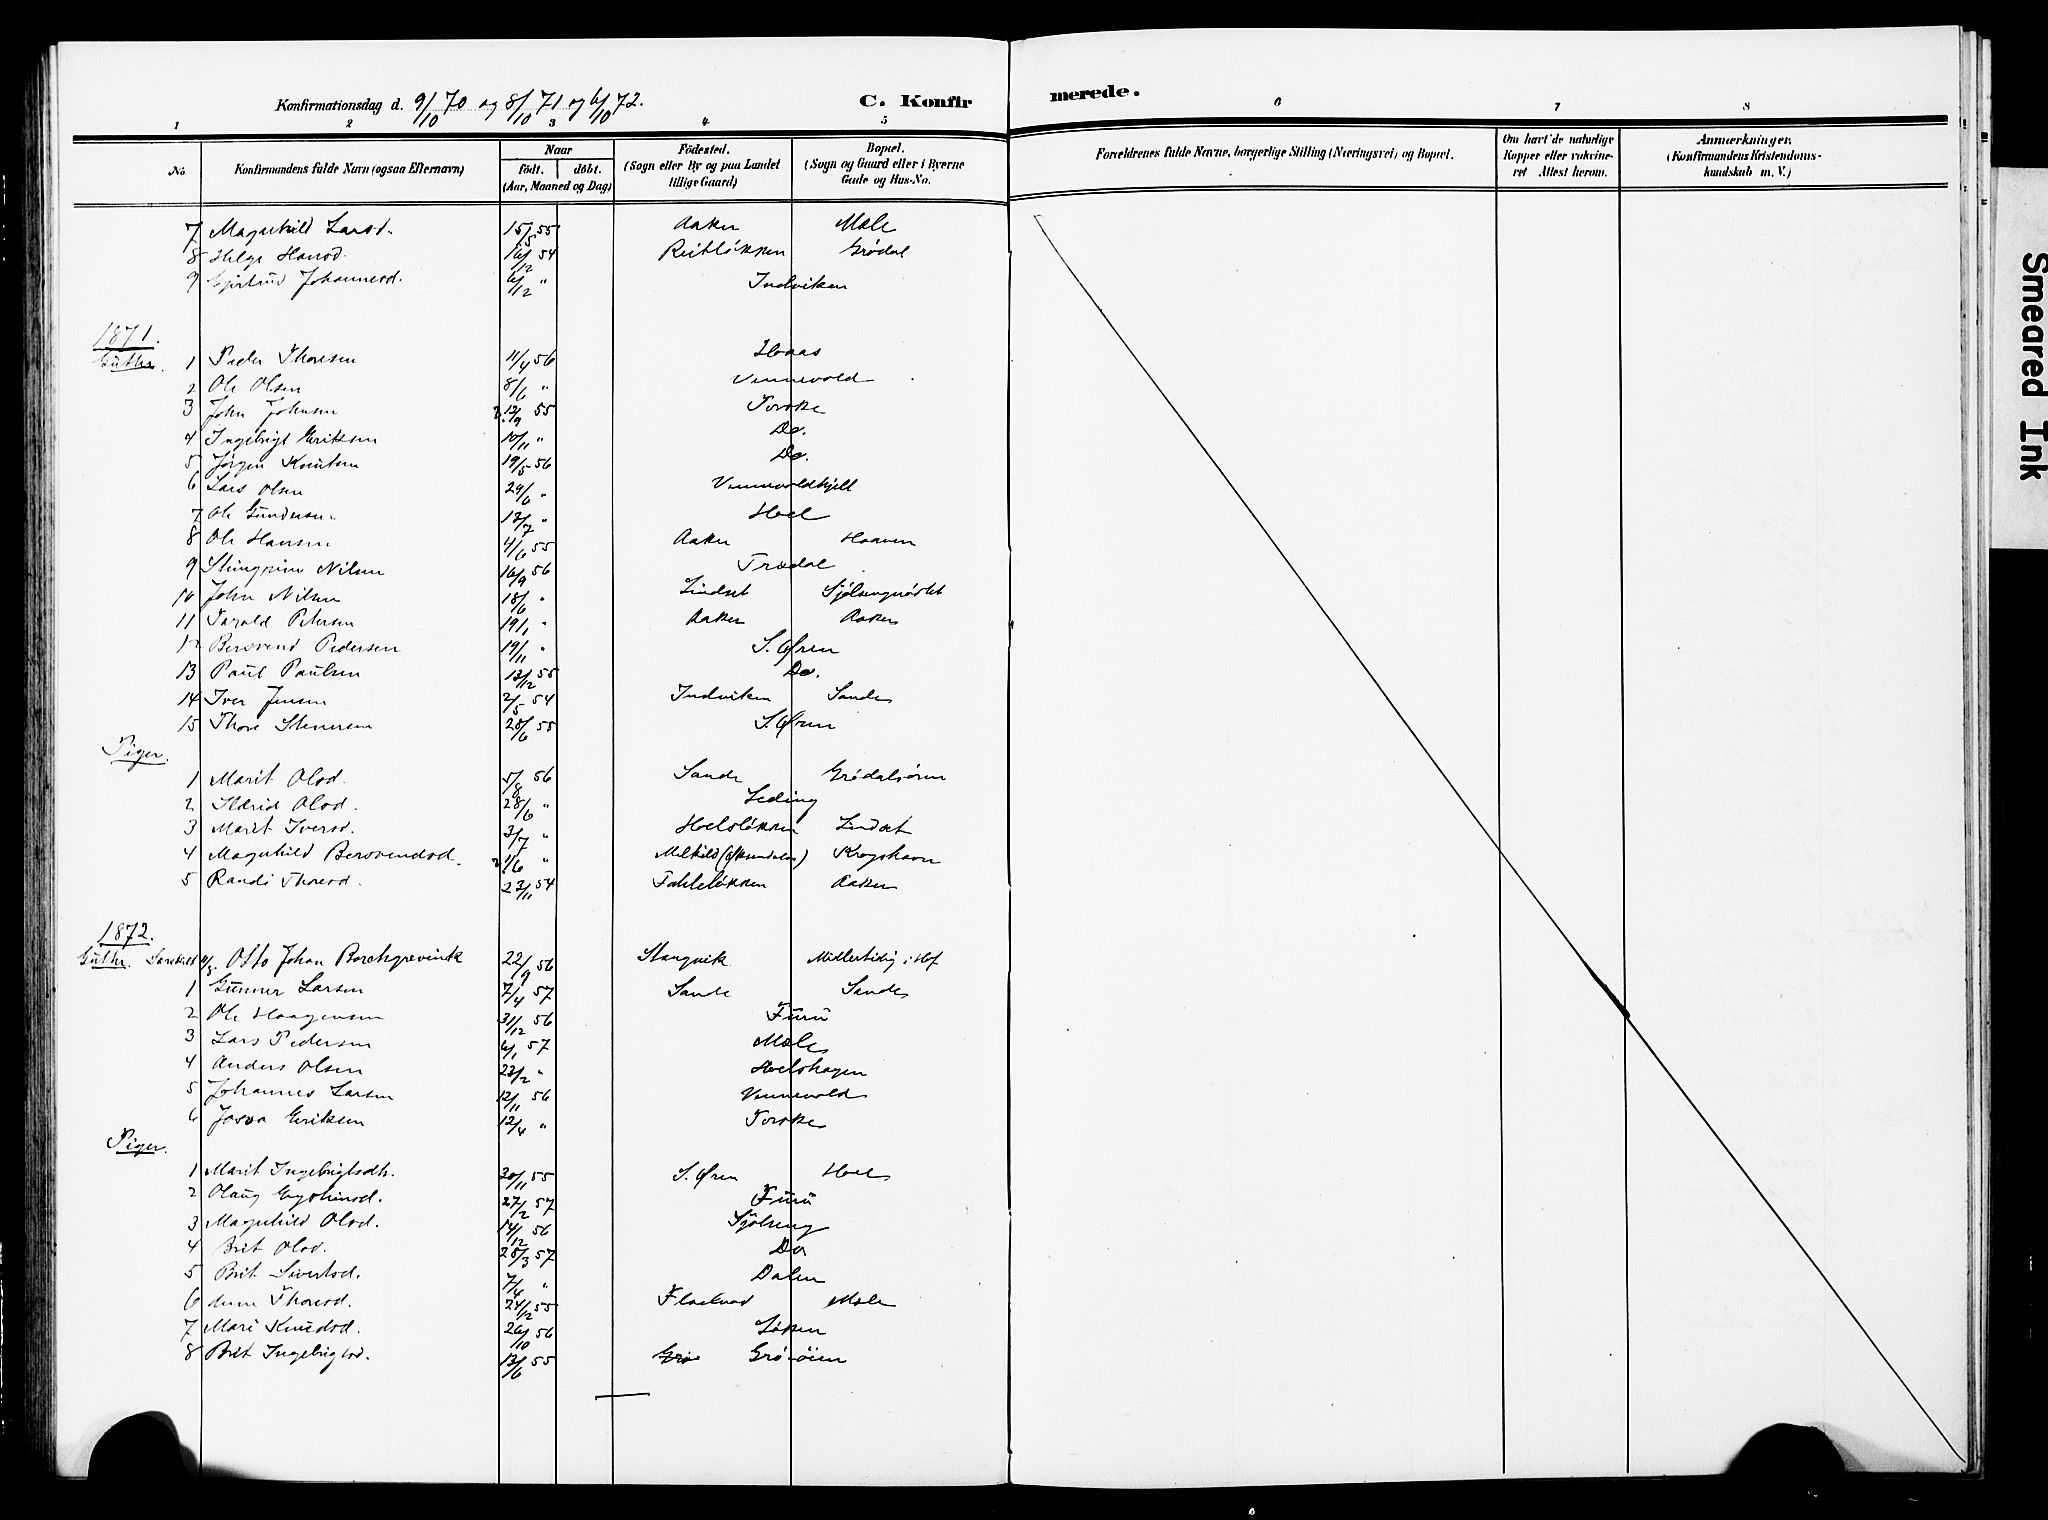 Konfirmationsdag d. 9/10 70 og 8/10 71 og 6/10 72. C. Konfirmerede.
1 2 3 4 5 6 7 8
No. Konfirmandens fulde Navn (ogsaa Efternavn) Naar født. døbt. (Aar, Maaned og Dag) Fødested. (Sogn eller By og paa Landet tillige Gaard) Bopæl. (Sogn og Gaard eller i Byerne Gade og Hus-No. Forældrenes fulde Navne, borgerlige Stilling (Næringsvei) og Bopæl. Om havt de naturlige Kopper eller vakcineret Attest herom. Anmærkninger. (Konfirmandens Kristendomskundskab m. V.)
7 Magnhild Larsd. 15/5 55 Aaker Mæle
8 Helge Hansd. 16/12 54 Reitløkken Grødal
9 Gjertrud Johannesd. 6/12 " Indviken
1871.
Gutter.
1 Peder Thoresen 11/4 56 Hoaas
2 Ole Olsen 8/6 " Vennevold
3 John Johnsen 12/9 55 Torske
4 Ingebrigt Eriksen 10/11 " Do.
5 Jørgen Knutsen 19/5 56 Do.
6 Lars Olsen 29/6 " Vennevoldhjell
7 Ole Gundersen 13/7 " Hoel
8 Ole Hansen 4/6 55 Aaker Haaven
9 Steingrim Nilsen 16/9 56 Trædal
10 John Nilsen 18/6 " Lindset
11 Tarald Petersen 19/1 " Aaker Aaker
12 Bersvend Pedersen 19/11 " S. Øren
13 Paul Paulsen 13/12 55 Do.
14 Iver Jensen 2/5 54 Indviken Sande
15 Thore Stenersen 28/6 55 S. Øren
Piger.
1 Marit Olsd. 5/8 56 Sande Grødalsøren
2 Sigrid Olsd. 28/6 " Leding
3 Marit Iversd. 3/7 " Hoelsløkken Lindset
4 Magnhild Bersvendsd. 21/6 " Krogshavn
5 Randi Thoresd. 23/11 54 Fahleløkken Aaker
1872.
Gutter. Otto Johan Borchgrevink 22/9 56 Stangvik Midlertidig i Hof
1 Gunner Larsen 7/4 57 Sande Sande
2 Ole Haagensen 31/12 56 Furu
3 Lars Pedersen 6/1 57 Mæle
4 Anders Olsen 23/2 " Hoelshagen
5 Johannes Larsen 12/11 56 Vennevold
6 Josva Eriksen 12/4 " Torske
Piger.
1 Marit Ingebrigtsdtr. 30/11 55 S. Øren Hoel
2 Olaug Eysteinsd. 27/2 57 Furu
3 Magnhild Olsd. 14/12 56 Sjølseng
4 Brit Olsd. 25/3 57 Do
5 Brit Sivertsd. 7/4 " Dalen
6 Anne Thoresd. 24/12 55 Mæle
7 Mari Knudsd. 26/10 56 Løken
8 Brit Ingebrigtsd. 13/6 55 Grøøien
Smeared Ink